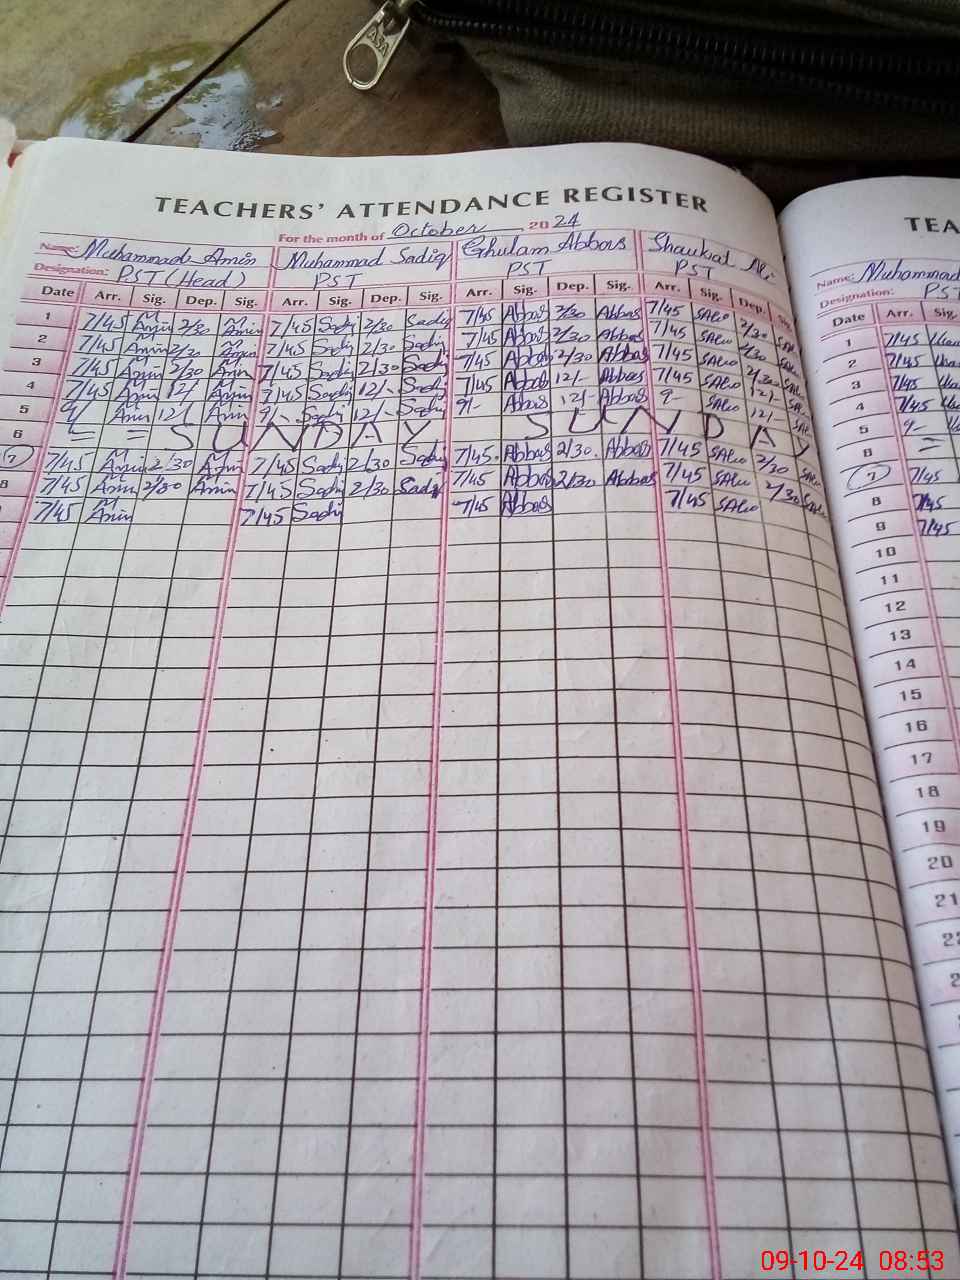 ASA
TEACHERS' ATTENDANCE REGISTER
For the month of October 2024
Name: Muhammad Amin Muhammad Sadiq Ghulam Abbas Shaukat Ali
Designation: PST (Head) PST PST PST
Date Arr. Sig. Dep. Sig. Arr. Sig. Dep. Sig. Arr. Sig. Dep. Sig. Arr. Sig. Dep. Sig.
1 7/45 M Amin 2/30 M Amin 7/45 Sadiq 2/30 Sadiq 7/45 Abbas 2/30 Abbas 7/45 SAli 2/30 SAli
2 7/45 M Amin 2/30 M Amin 7/45 Sadiq 2/30 Sadiq 7/45 Abbas 2/30 Abbas 7/45 SAli 2/30 SAli
3 7/45 M Amin 2/30 M Amin 7/45 Sadiq 2/30 Sadiq 7/45 Abbas 2/30 Abbas 7/45 SAli 2/30 SAli
4 7/45 M Amin 12/- M Amin 7/45 Sadiq 12/- Sadiq 7/45 Abbas 12/- Abbas 7/45 SAli 12/- SAli
5 9/- Amin 12/- Amin 9/- Sadiq 12/- Sadiq 9/- Abbas 12/- Abbas 9- SAli 12/- SAli
6 = = SUNDAY SUNDAY
7 7/45 M Amin 2/30 M Amin 7/45 Sadiq 2/30 Sadiq 7/45 Abbas 2/30 Abbas 7/45 SAli 2/30 SAli
8 7/45 Amin 2/30 Amin 7/45 Sadiq 2/30 Sadiq 7/45 Abbas 2/30 Abbas 7/45 SAli 2/30 SAli
7/45 Amin 7/45 Sadiq 7/45 Abbas 7/45 SAli
TEA
Name: Muhammad
Designation: PST
Date Arr. Sig.
1 7/45
2 7/45
3 7/45
4 7/45
5 9/-
6 =
7 7/45
8 7/45
9 7/45
10
11
12
13
14
15
16
17
18
19
20
21
22
09-10-24 08:53